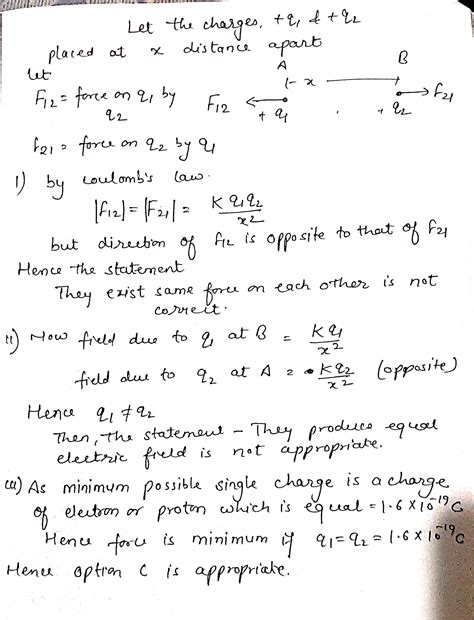 Let the charges, +q₁ & +q₂
placed at x distance apart
let
A |- x —— B
F₁₂ = force on q₁ by
q₂
F₁₂ ← +q₁ . +q₂ → F₂₁
F₂₁ = force on q₂ by q₁
i) by coulomb's law.
|F₁₂| = |F₂₁| = K q₁q₂ / x²
but direction of F₁₂ is opposite to that of F₂₁
Hence the statement
They exist same force on each other is not
correct.
ii) Now field due to q₁ at B = Kq₁ / x²
field due to q₂ at A = Kq₂ / x² (opposite)
Hence q₁ ≠ q₂
Then, the statement - They produce equal
electric field is not appropriate.
(iii) As minimum possible single charge is a charge
of electron or proton which is equal = 1.6 × 10⁻¹⁹ C
Hence force is minimum if q₁ = q₂ = 1.6 × 10⁻¹⁹ C
Hence option C is appropriate.